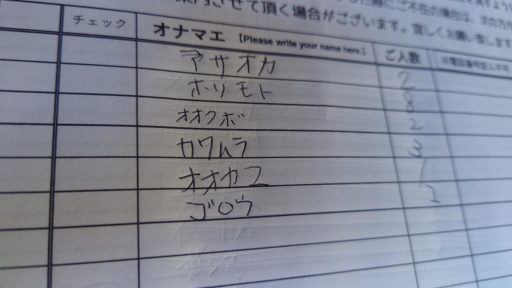 案内させて頂く場合がございます。宜しくお願い致します
チェック オナマエ 【Please write your name here.】 ご人数
アサオカ 2
ホリモト 8
オオクボ 2
カワムラ 3
オオカワ 1
ゴロウ 2